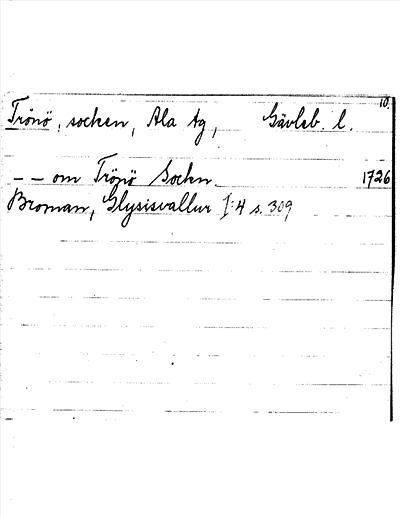 10.
Trönö, socken, Ala tg, Gävleb. l.
– – om Trönö Sockn 1726
Broman, Glysisvallur I:4 s. 309